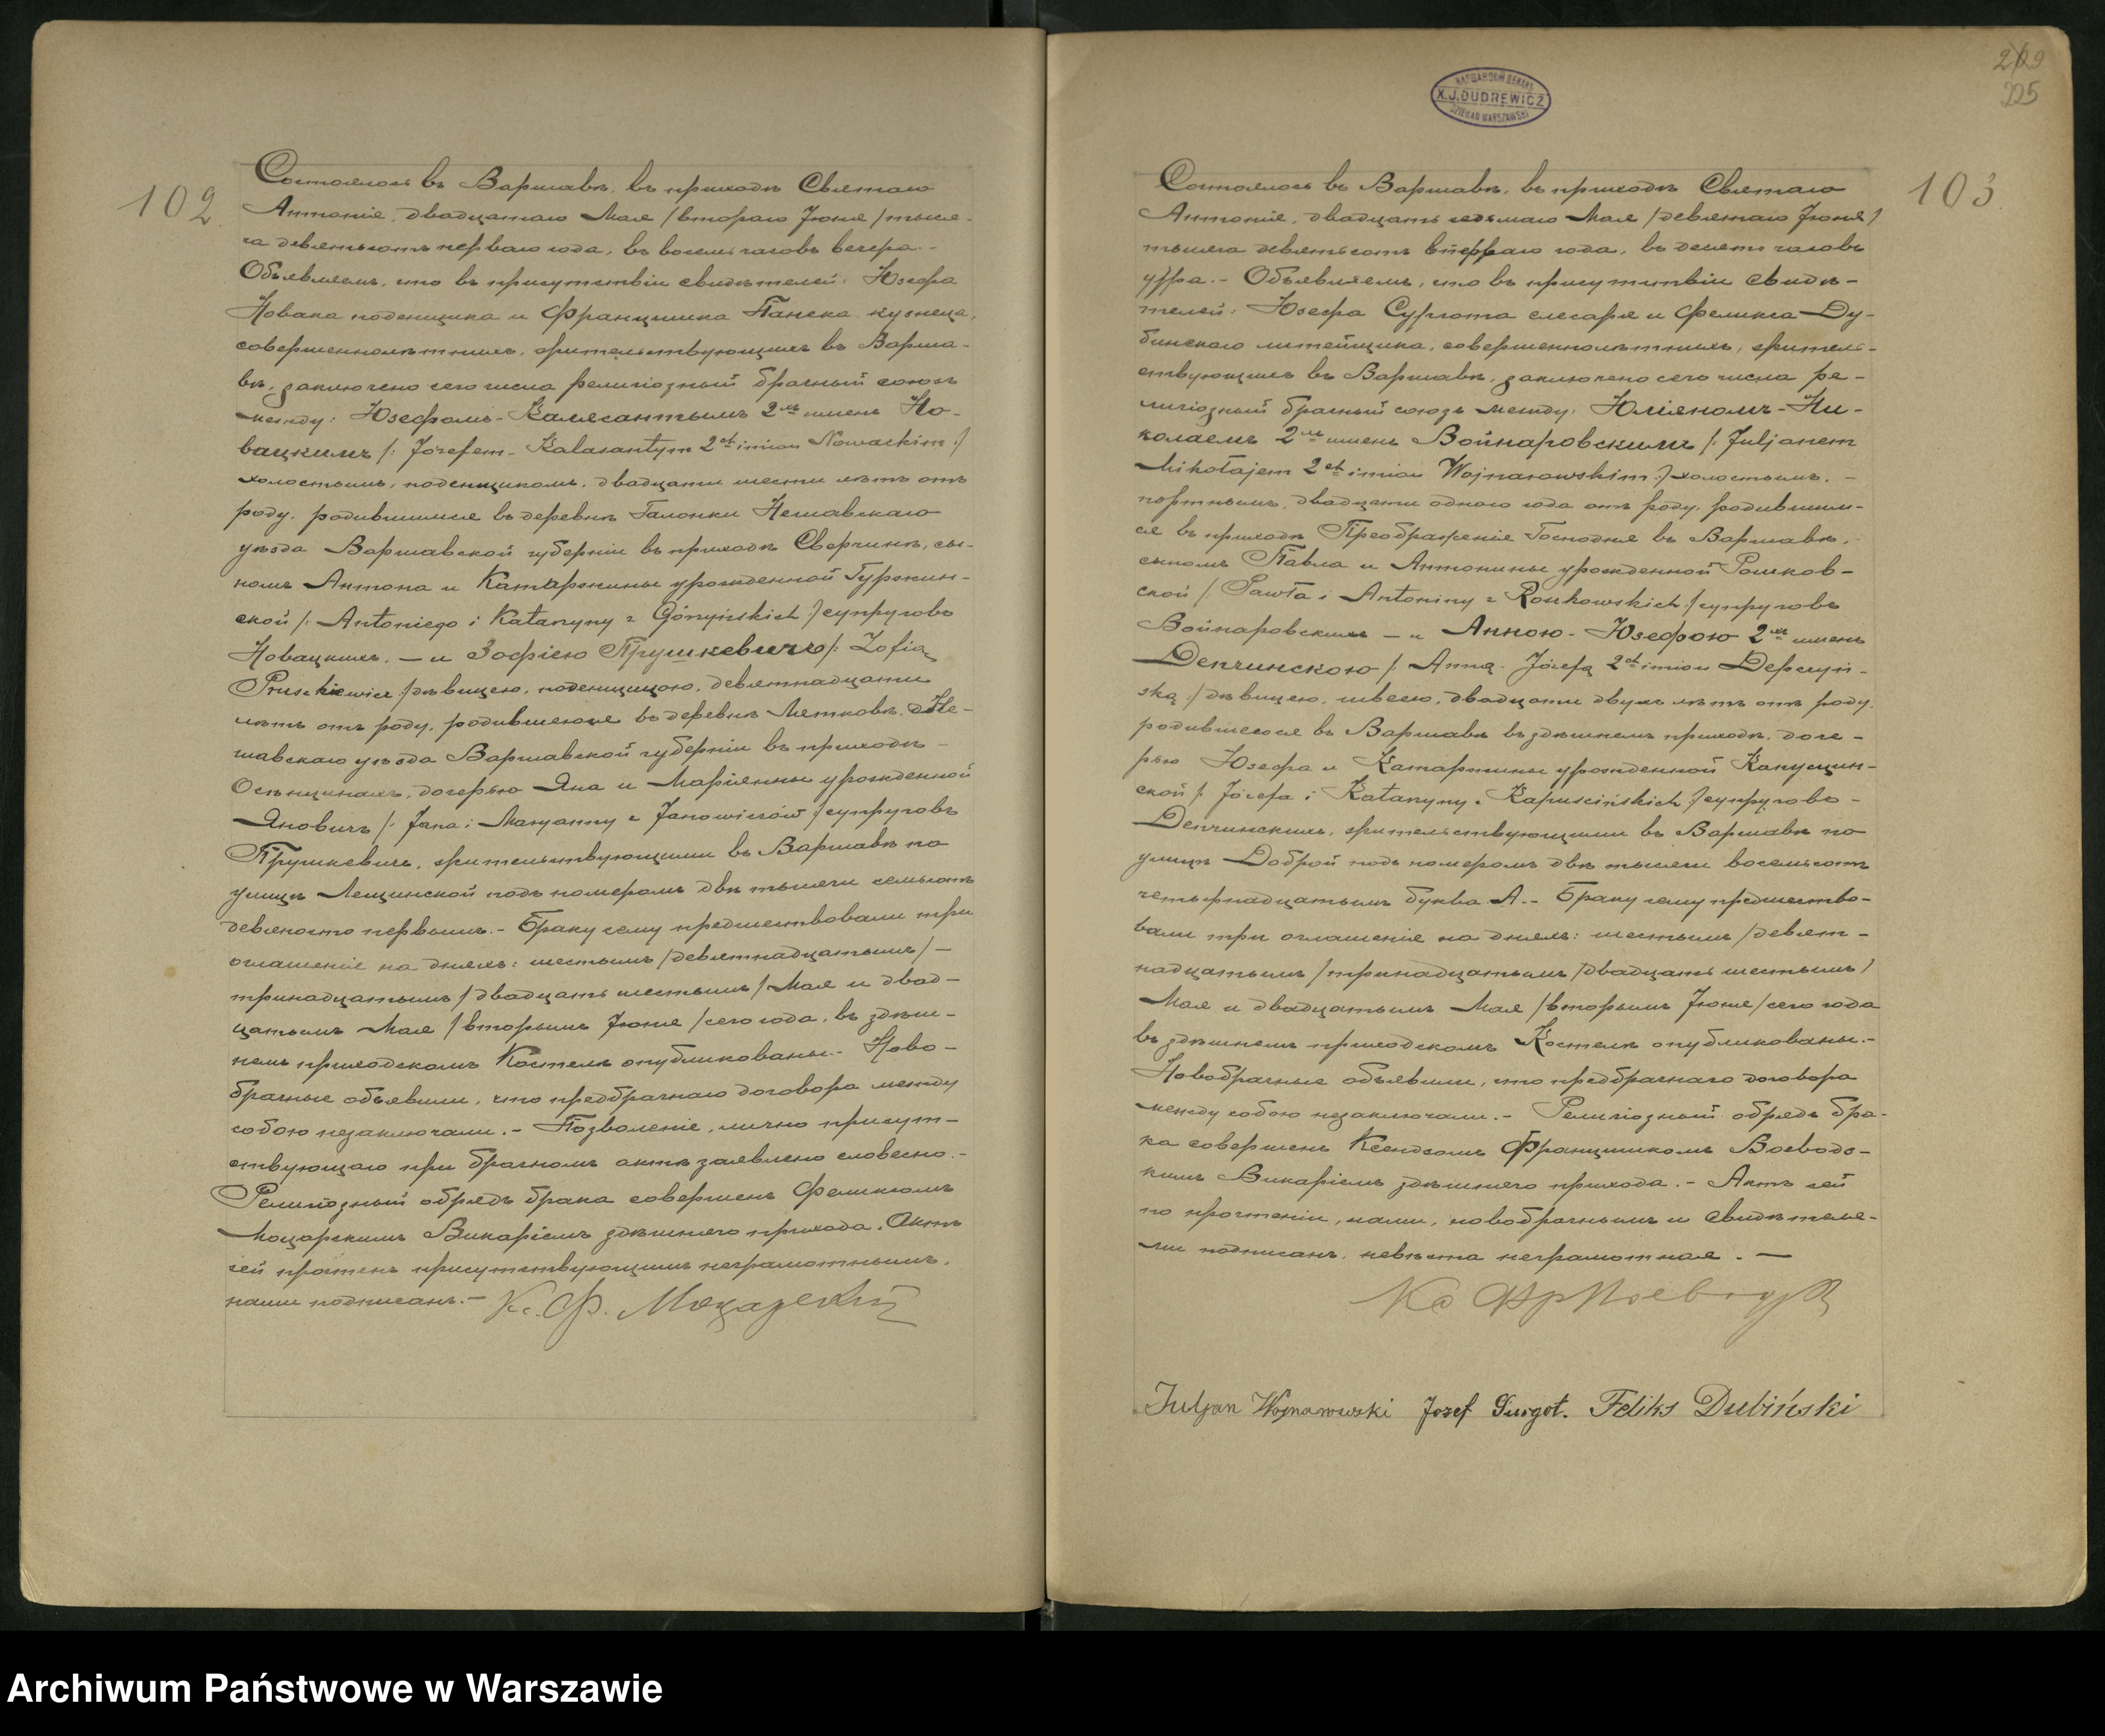 102
Состоялось въ Варшавѣ, въ приходѣ Святаго
Антонія, двадцатаго Мая /втораго Іюня/ тыся-
ча девятьсотъ перваго года, въ восемь часовъ вечера.-
Объявляемъ, что въ присутствіи свидѣтелей: Юзефа
Новака поденщика и Францишка Панека кузнеца,
совершеннолѣтнихъ, жительствующихъ въ Варша-
вѣ, заключено сего числа религіозный брачный союзъ
между: Юзефомъ-Калясантымъ 2хъ именъ Но-
вацкимъ /: Józefem-Kalasantym 2ch imion Nowackim :/
холостымъ, поденщикомъ, двадцати шести лѣтъ отъ
роду, родившимся въ деревнѣ Галонки Нешавскаго
уѣзда Варшавской губерніи въ приходѣ Сверчинъ, сы-
номъ Антона и Катаржины урожденной Гуржин-
ской /: Antoniego i Katarzyny z Górzyńskich :/ супруговъ
Новацкихъ, — и Зофіею Прушкевичъ /: Zofią
Pruszkiewicz :/ дѣвицею, поденщицою, девятнадцати
лѣтъ отъ роду, родившеюся въ деревнѣ Лятковъ, Не-
шавскаго уѣзда Варшавской губерніи въ приходѣ
Осѣнцинахъ, дочерью Яна и Маріянны урожденной
Яновичъ /: Jana i Maryanny z Janowiczów :/ супруговъ
Прушкевичъ, жительствующими въ Варшавѣ по
улицѣ Лещинской подъ номеромъ двѣ тысячи семьсотъ
девяносто первымъ.- Браку сему предшествовали три
оглашенія на дняхъ: шестымъ /девятнадцатымъ/ —
тринадцатымъ /двадцать шестымъ/ Мая и двад-
цатымъ Мая /вторымъ Іюня/ сего года, въ здѣш-
немъ приходскомъ Костелѣ опубликованы.- Ново-
брачные объявили, что предбрачнаго договора между
собою незаключали.- Позволеніе, лично присут-
ствующаго при брачномъ актѣ заявлено словесно.-
Религіозный обрядъ брака совершенъ Феликсомъ
Моцарскимъ Викаріемъ здѣшняго прихода. Актъ
сей прочтенъ присутствующимъ неграмотнымъ,
нами подписанъ.- Кс. Ф. Моцарскій
229
225
X.J.DUDREWICZ
DZIEKAN WARSZAWSKI
103
Состоялось въ Варшавѣ, въ приходѣ Святаго
Антонія, двадцать седьмаго Мая /девятаго Іюня/
тысяча девятьсотъ перваго года, въ десять часовъ
утра.- Объявляемъ, что въ присутствіи свидѣ-
телей: Юзефа Сургота слесаря и Феликса Ду-
бинскаго литейщика, совершеннолѣтнихъ, житель-
ствующихъ въ Варшавѣ, заключено сего числа ре-
лигіозный брачный союзъ между: Юліяномъ-Ни-
колаемъ 2хъ именъ Войнаровскимъ /: Juljanem
Mikołajem 2ch imion Wojnarowskim :/ холостымъ, -
портнымъ, двадцати одного года отъ роду, родившим-
ся въ приходѣ Преображенія Господня въ Варшавѣ,
сыномъ Павла и Антонины урожденной Рошков-
ской /: Pawła i Antoniny z Roszkowskich :/ супруговъ
Войнаровскихъ — и Анною-Юзефою 2хъ именъ
Депчинскою /: Anną-Józefą 2ch imion Depczyń-
ską :/ дѣвицею, швеею, двадцати двухъ лѣтъ отъ роду,
родившеюся въ Варшавѣ въ здѣшнемъ приходѣ, доче-
рью Юзефа и Катаржины урожденной Капусцин-
ской /: Józefa i Katarzyny z Kapuścińskich :/ супруговъ -
Депчинскихъ, жительствующими въ Варшавѣ по
улицѣ Доброй подъ номеромъ двѣ тысячи восемьсотъ
четырнадцатымъ буква А.- Браку сему предшество-
вали три оглашенія на дняхъ: шестымъ /девят-
надцатымъ/ тринадцатымъ /двадцать шестымъ/
Мая и двадцатымъ Мая /вторымъ Іюня/ сего года
въ здѣшнемъ приходскомъ Костелѣ опубликованы.-
Новобрачные объявили, что предбрачнаго договора
между собою незаключали.- Религіозный обрядъ бра-
ка совершенъ Ксендзомъ Францишкомъ Воеводз-
кимъ Викаріемъ здѣшняго прихода.- Актъ сей
по прочтеніи, нами, новобрачнымъ и свидѣтеля-
ми подписанъ, невѣста неграмотная. —
Juljan Wojnarowski Jozef Surgot. Feliks Dubiński
Archiwum Państwowe w Warszawie